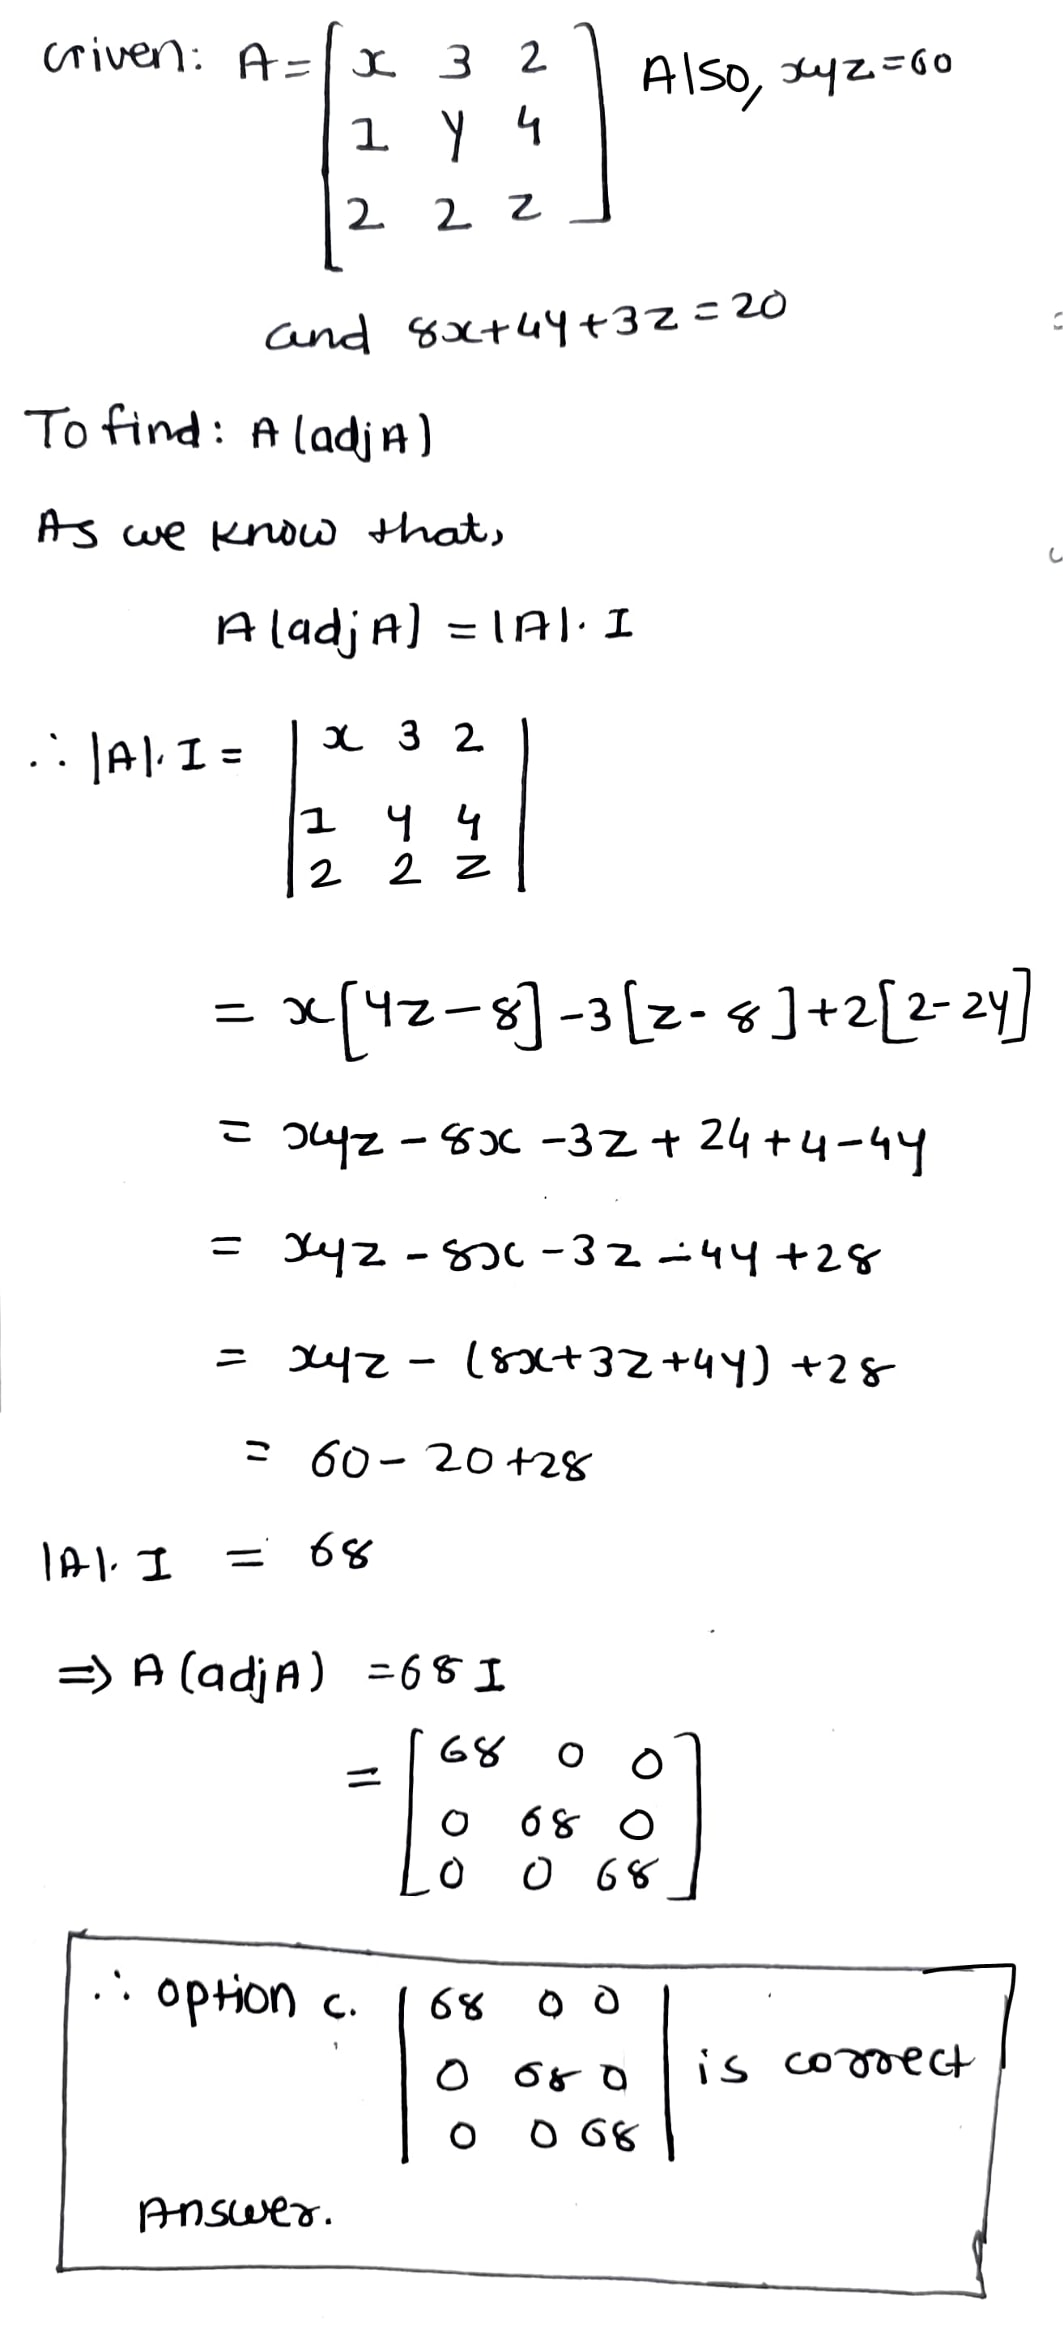 Given: A = [ x 3 2 Also, xyz=60
1 y 4
2 2 z ]
and 8x+4y+3z = 20
To find: A (adj A)
As we know that,
A (adj A) = |A|. I
∴ |A|. I = | x 3 2 |
1 y 4
2 2 z
= x[yz-8] -3[z-8]+2[2-2y]
= xyz - 8x -3z + 24 + 4 - 4y
= xyz - 8x - 3z - 4y + 28
= xyz - (8x+3z+4y) +28
= 60 - 20 +28
|A|. I = 68
⇒ A (adj A) = 68 I
= [ 68 0 0
0 68 0
0 0 68 ]
∴ option c. | 68 0 0 |
0 68 0 is correct
0 0 68
Answer.